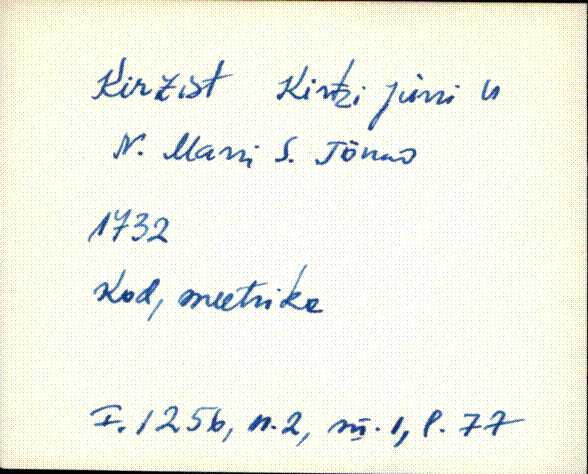 Kirzist Kirtzi Jürri u
N. Marri S. Tönno
1732
Kod, meetrika
F. 1256, n. 2, sü. 1, l. 77